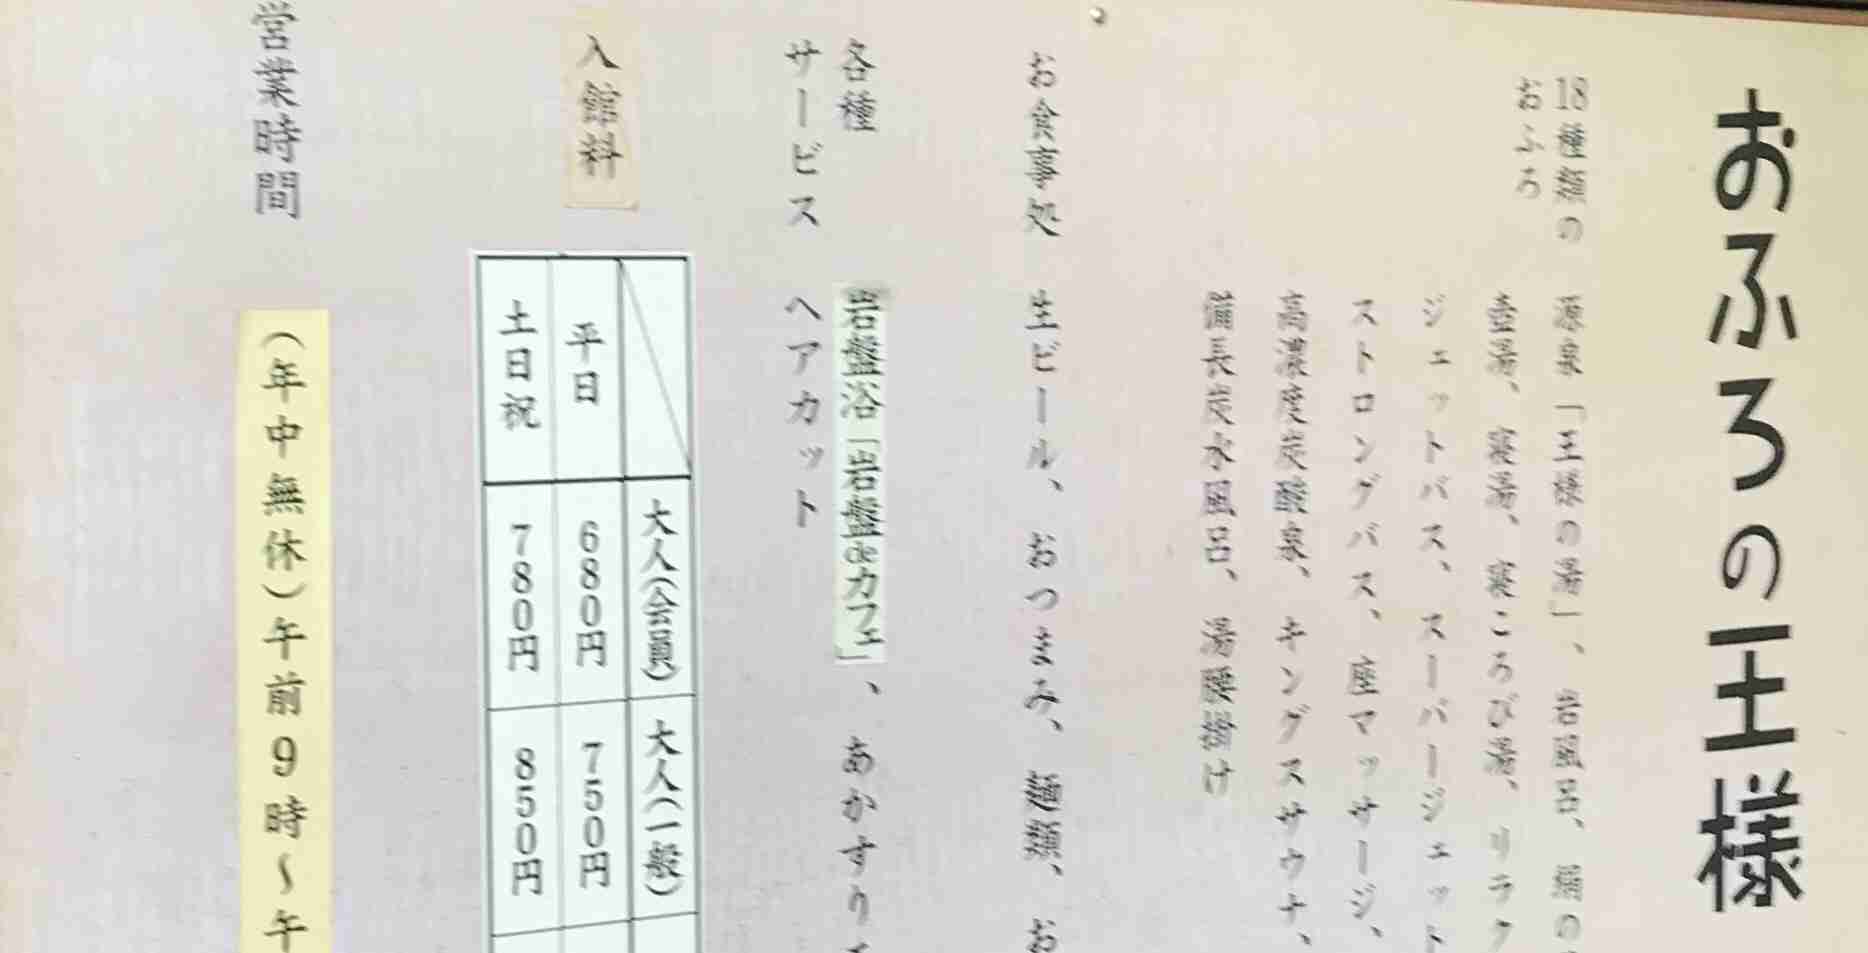 おふろの王様
18種類の
おふろ
源泉「王様の湯」、岩風呂、
壺湯、寝湯、寝ころび湯、リラク
ジェットバス、スーパージェット
ストロングバス、座マッサージ、
高濃度炭酸泉、キングスサウナ、
備長炭水風呂、湯腰掛け
お食事処
生ビール、おつまみ、麺類、お
各種
サービス
岩盤浴「岩盤deカフェ」、あかすり
ヘアカット
入館料
大人(会員)
大人(一般)
平日
680円
750円
土日祝
780円
850円
営業時間
(年中無休)午前9時~午